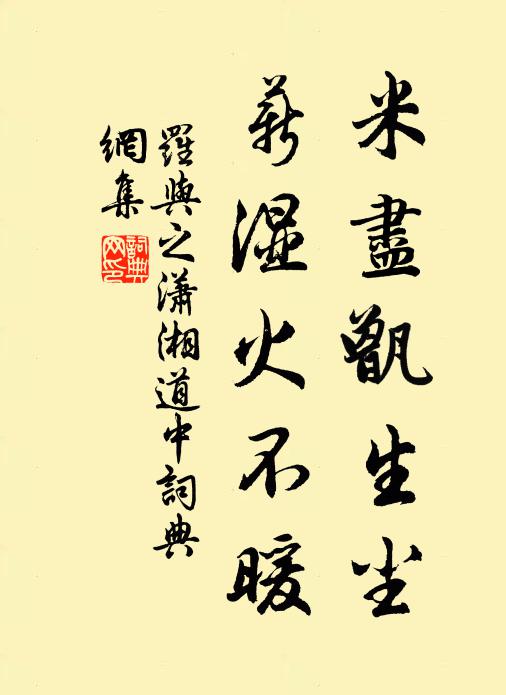 米盡甑生尘
薪湿火不暖
羅與之瀟湘道中詞典
網集
詞典
网印